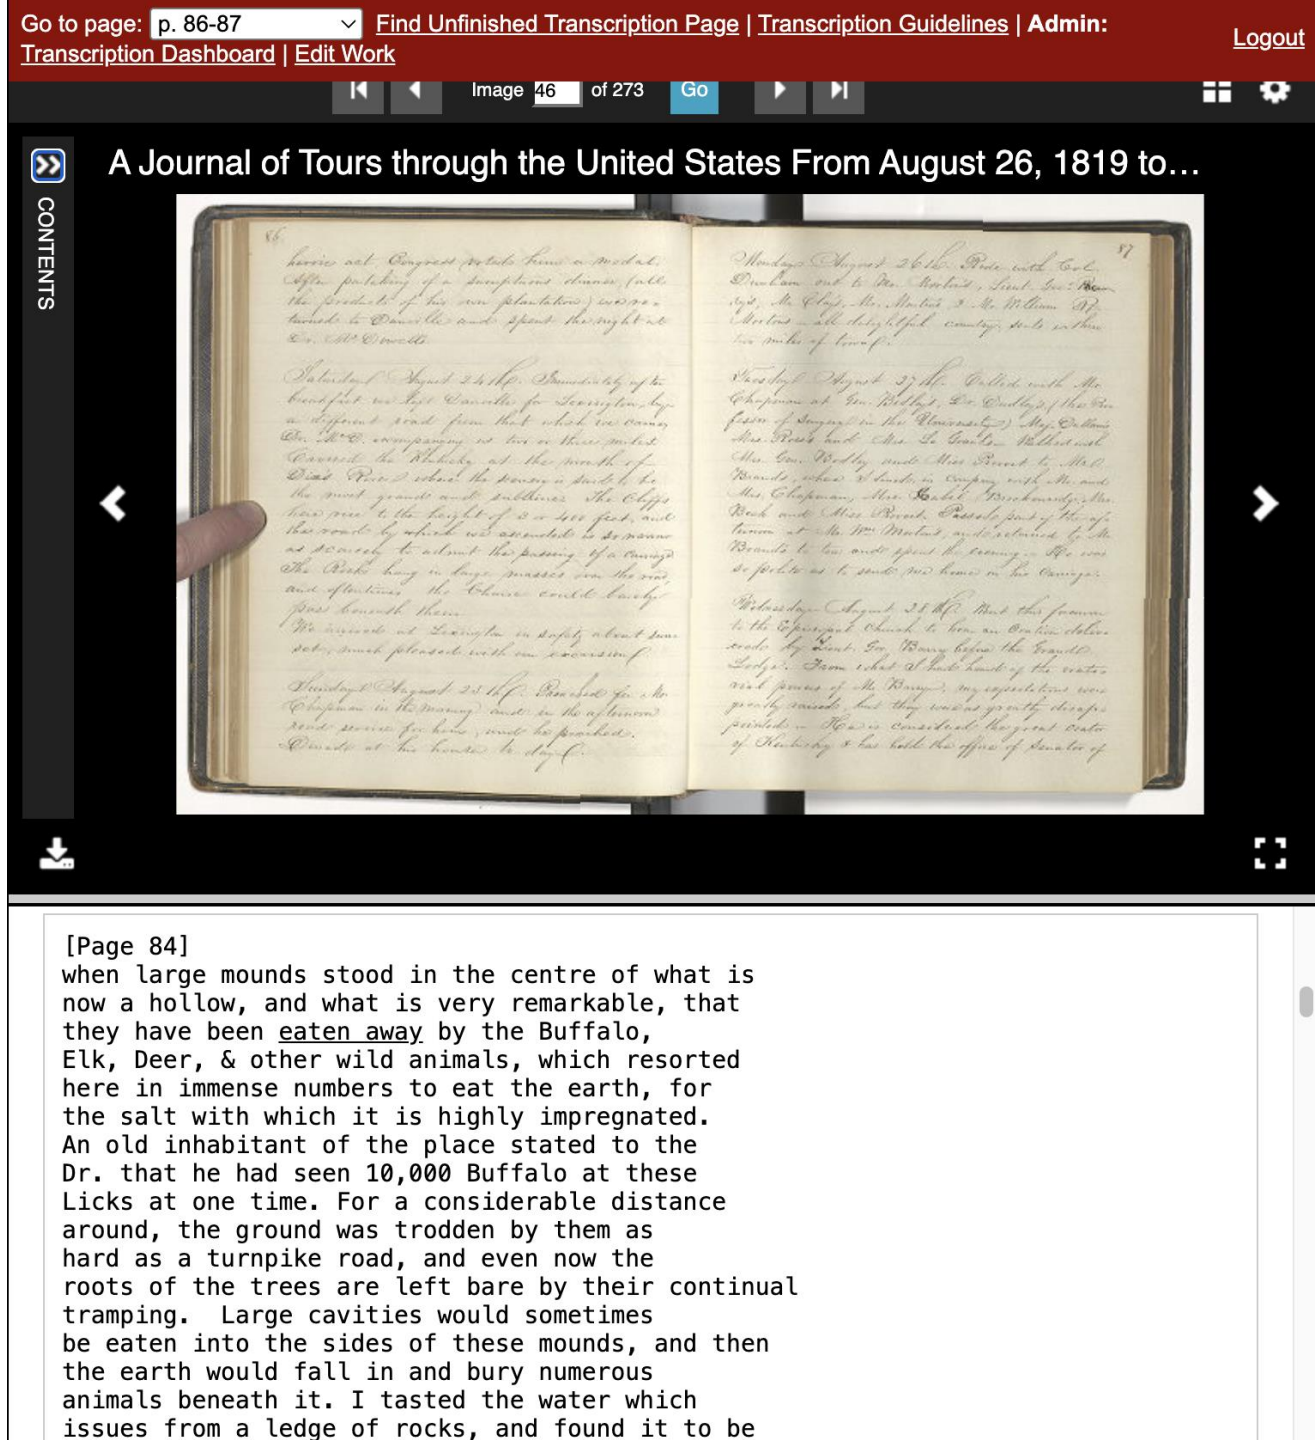 Go to page: p. 86-87 Find Unfinished Transcription Page | Transcription Guidelines | Admin:
Transcription Dashboard | Edit Work
Logout
Image 46 of 273 Go
CONTENTS
A Journal of Tours through the United States From August 26, 1819 to...
86.
heroic act Congress voted him a medal.
After partaking of a sumptuous dinner (all
the products of his own plantation) we re-
turned to Danville and spent the night at
Dr. McDowells
Saturday August 24th. Immediately after
breakfast we left Danville for Lexington, by
a different road from that which we came,
Dr. McD. accompanying us two or three miles.
Crossed the Kentucky at the mouth of
Dix's River where the scenery is said to be
the most grand and sublime. The Cliffs
here rise to the height of 3 or 400 feet, and
the road by which we ascended is so narrow
as scarcely to admit the passing of a carriage
The Rocks hang in large masses over the road,
and oftentimes the Chaise could barely
pass beneath them.
We arrived at Lexington in safety about sun
set, much pleased with our excursion.
Sunday August 25th. Preached for Mr.
Chapman in the morning and in the afternoon
read service for him, and he preached.
Dined at his house to day.
87
Monday August 26th. Rode with Col.
Dunham out to Mr. Lieut. Gov.
Mr. Clay's, Mr. & Mr. William
Mortons all delightful country seats within
two miles of town.
Tuesday August 27th. Called with Mr.
Chapman at Gen. Bodley's, Dr. Dudley's, (the Pro
fessor of Surgery in the University) Maj.
Mrs. Ross's and Mrs. Walked with
Mrs. Gen. Bodley and Miss to Mr.
Brands, where I dined in company with Mr. and
Mrs. Chapman, Mrs. Breckenridge, Mrs.
and Miss Passed part of the af
ternoon at Mr. Wm. Morton's, and returned to Mr.
Brands to tea and spent the evening. He was
so polite as to send me home in his Carriage.
Wednesday August 28th. Went this forenoon
to the Episcopal Church to hear an Oration deliv
ered by Lieut. Gov. Barry before the Grand
Lodge. From what I had heard of the orato
rial powers of Mr. Barry, my expectations were
greatly raised, but they were as greatly disap
pointed. He is considered the great orator
of Kentucky & has held the office of Senator of
[Page 84]
when large mounds stood in the centre of what is
now a hollow, and what is very remarkable, that
they have been eaten away by the Buffalo,
Elk, Deer, & other wild animals, which resorted
here in immense numbers to eat the earth, for
the salt with which it is highly impregnated.
An old inhabitant of the place stated to the
Dr. that he had seen 10,000 Buffalo at these
Licks at one time. For a considerable distance
around, the ground was trodden by them as
hard as a turnpike road, and even now the
roots of the trees are left bare by their continual
tramping.  Large cavities would sometimes
be eaten into the sides of these mounds, and then
the earth would fall in and bury numerous
animals beneath it. I tasted the water which
issues from a ledge of rocks, and found it to be